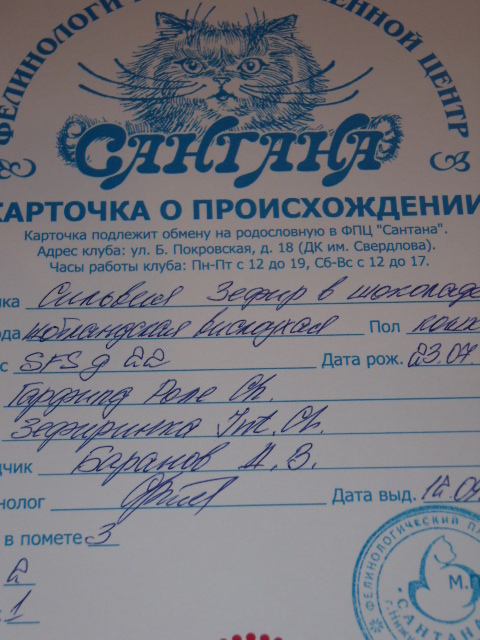 ФЕЛИНОЛОГИ ЕННОЙ ЦЕНТР
САНТАНА
КАРТОЧКА О ПРОИСХОЖДЕНИИ
Карточка подлежит обмену на родословную в ФПЦ "Сантана".
Адрес клуба: ул. Б. Покровская, д. 18 (ДК им. Свердлова).
Часы работы клуба: Пн-Пт с 12 до 19, Сб-Вс с 12 до 17.
чка Сильвия Зефир в шоколаде
ода шотландская вислоухая Пол кошк
с SFS g 22 Дата рож. 23.07.
Гарфилд Роле Ch.
Зефиринка Int. Ch.
дчик Баранов А. В.
нолог Дата выд.
в помете 3
2
1
ФЕЛИНОЛОГИЧЕСКИЙ
САНТАНА
М.П